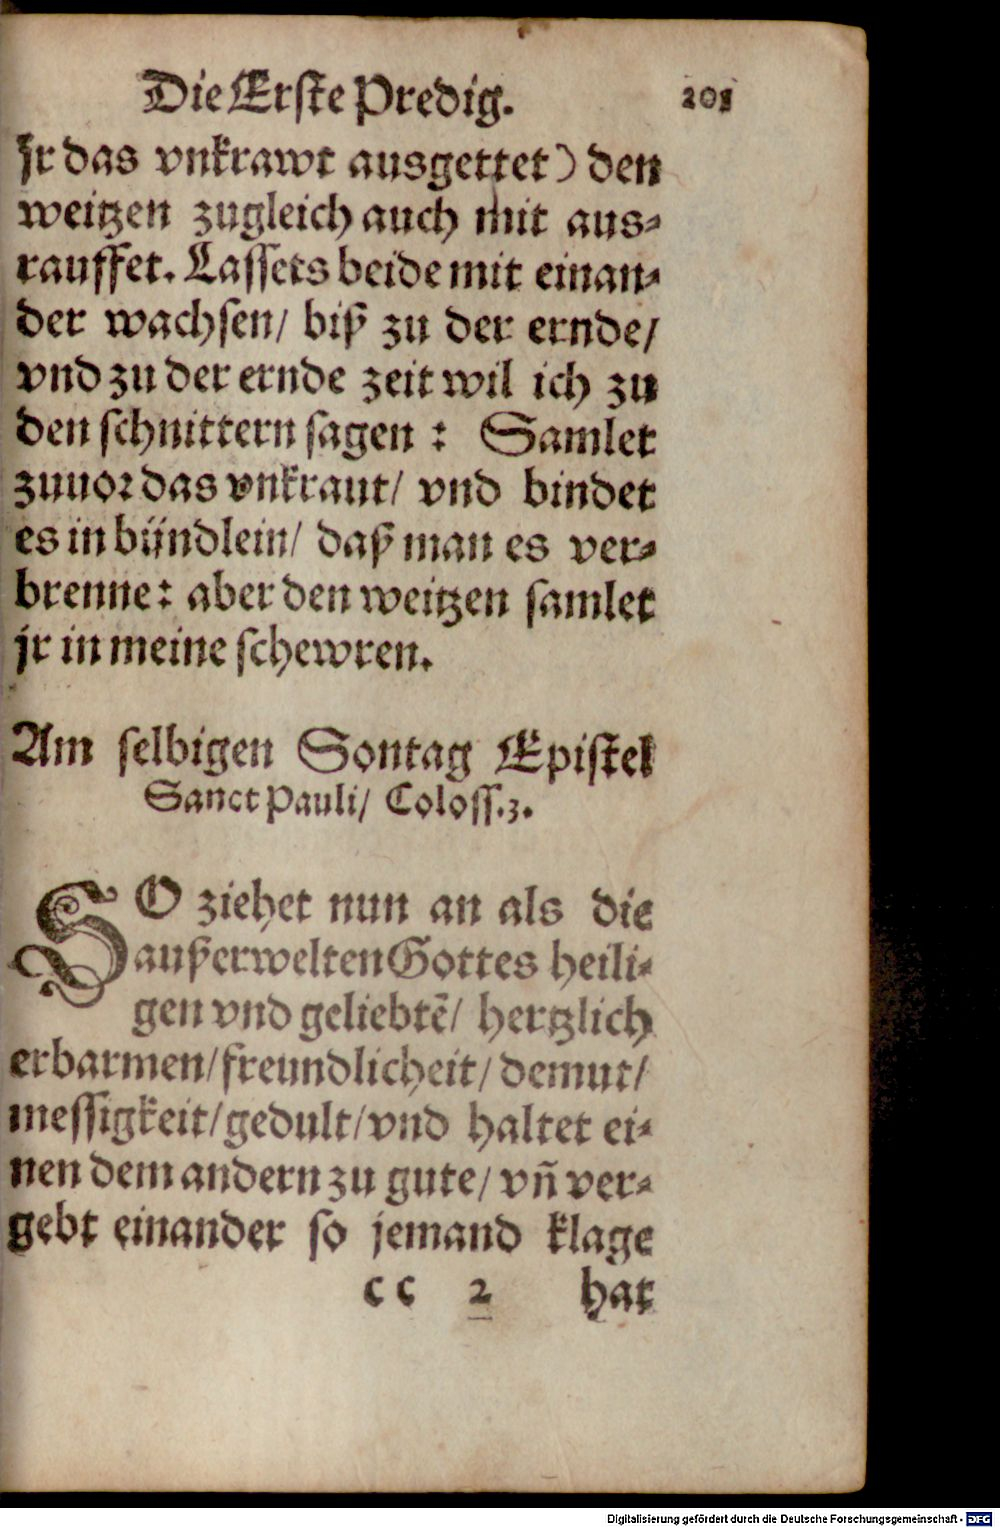 Die Erste Predig. 201
Jr das vnkrawt ausgettet) den
weitzen zugleich auch mit aus⸗
rauffet. Lassets beide mit einan⸗
der wachsen/ biß zu der ernde/
vnd zu der ernde zeit wil ich zu
den schnittern sagen : Samlet
zuuor das vnkraut/ vnd bindet
es in bündlein/ daß man es ver⸗
brenne: aber den weitzen samlet
jr in meine schewren.
Am selbigen Sontag Epistel
Sanct Pauli/ Coloss.3.
SO ziehet nun an als die
außerwelten Gottes heili⸗
gen vnd geliebtē/ hertzlich
erbarmen/ freundlicheit/ demut/
messigkeit/ gedult/ vnd haltet ei⸗
nen dem andern zu gute/ vñ ver⸗
gebt einander so jemand klage
cc 2 hat
Digitalisierung gefördert durch die Deutsche Forschungsgemeinschaft - DFG